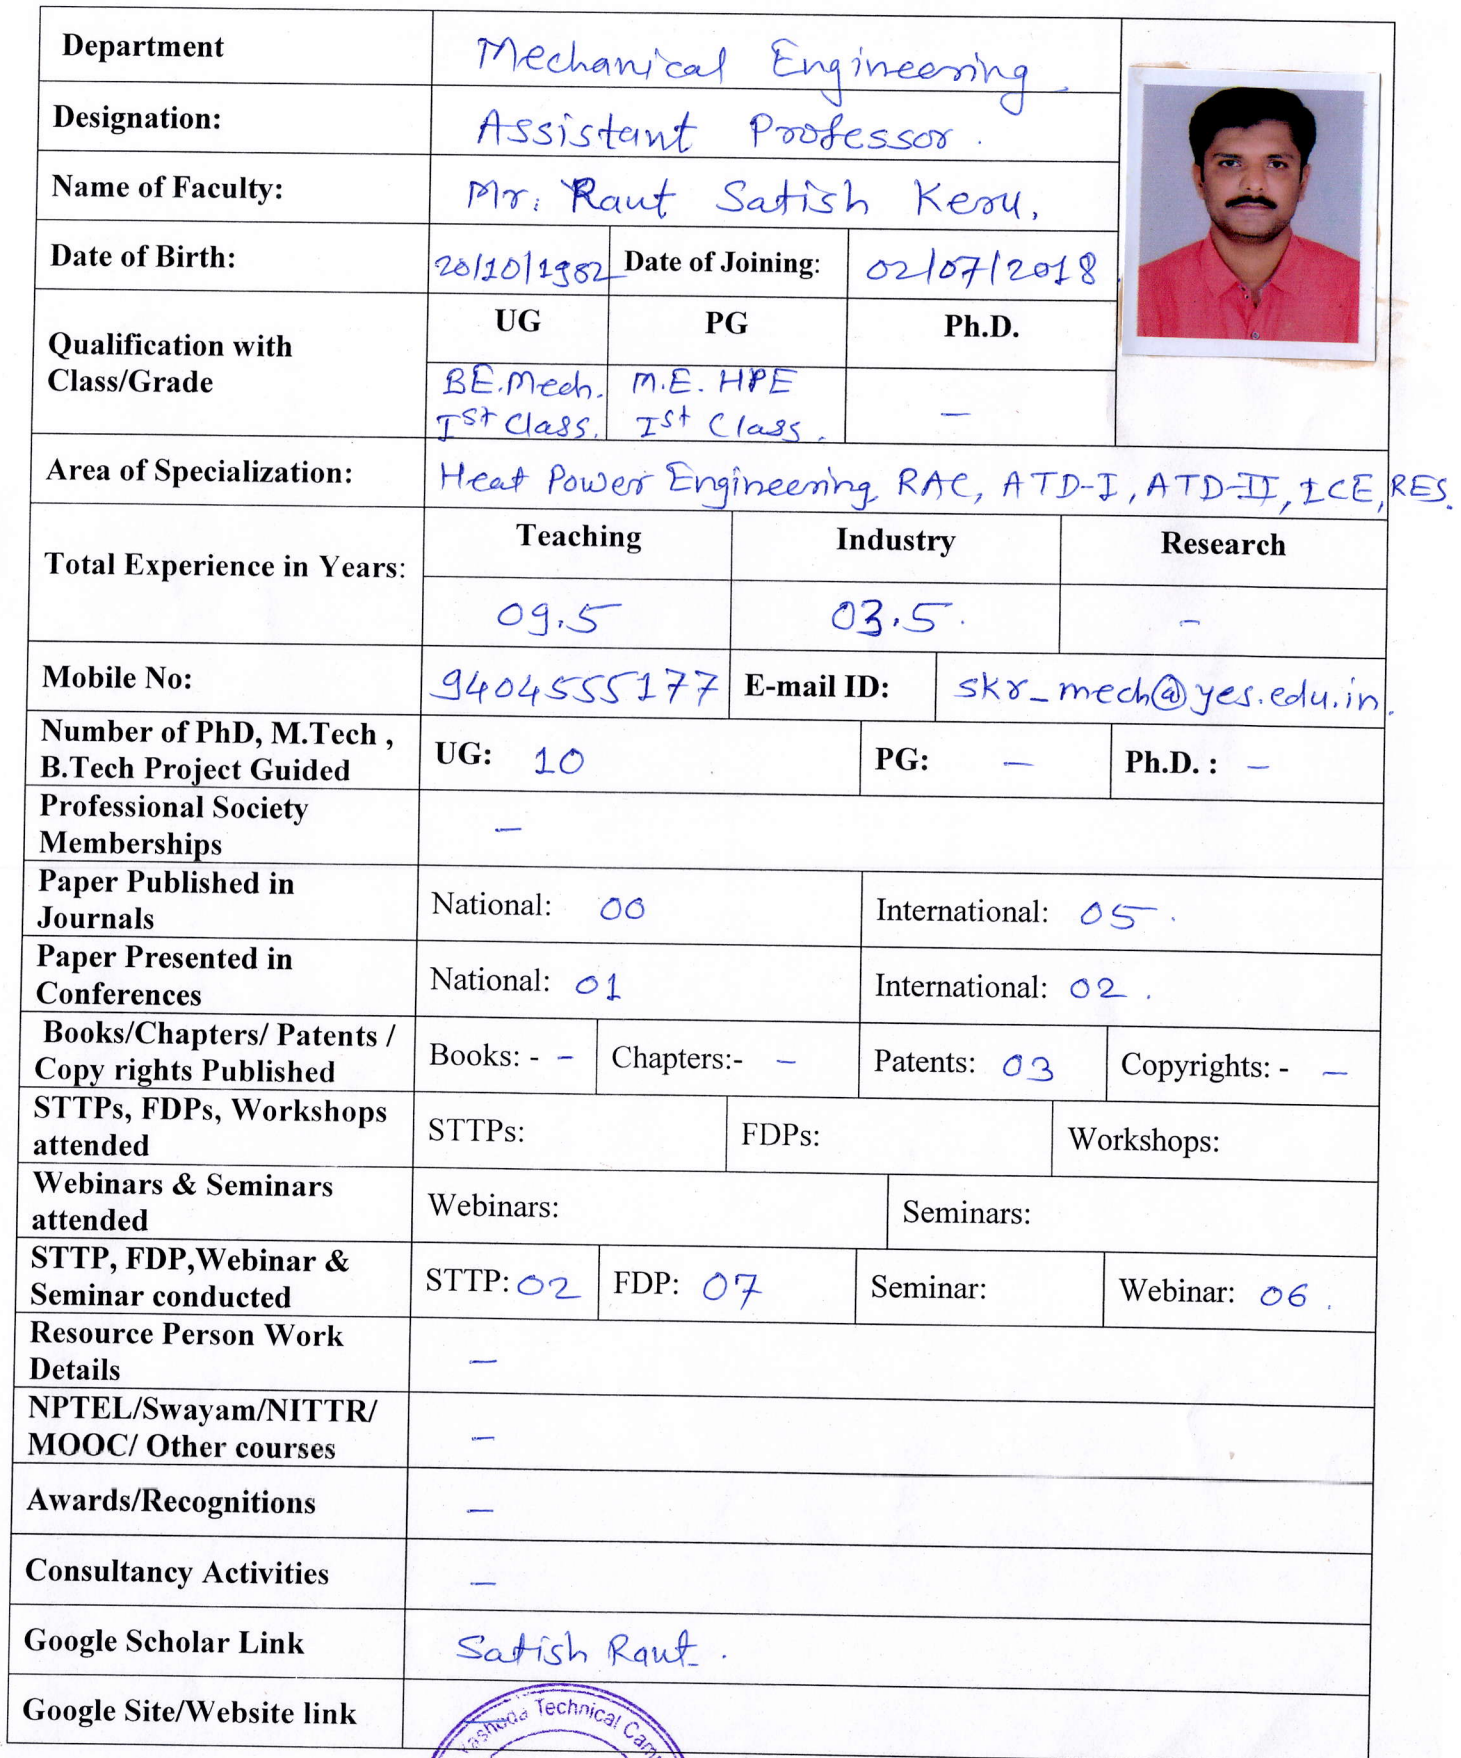 Department Mechanical Engineering
Designation: Assistant Professor.
Name of Faculty: Mr. Raut Satish Keru.
Date of Birth: 20/10/1982 Date of Joining: 02/07/2018
Qualification with
Class/Grade
UG PG Ph.D.
BE.Mech. M.E. HPE
Ist Class. Ist Class. –
Area of Specialization: Heat Power Engineering RAC, ATD-I, ATD-II, ICE, RES.
Total Experience in Years:
Teaching Industry Research
09.5 03.5. –
Mobile No: 9404555177 E-mail ID: skr_mech@yes.edu.in.
Number of PhD, M.Tech ,
B.Tech Project Guided
UG: 10 PG: – Ph.D. : –
Professional Society
Memberships
–
Paper Published in
Journals
National: 00 International: 05.
Paper Presented in
Conferences
National: 01 International: 02.
Books/Chapters/ Patents /
Copy rights Published
Books: - – Chapters:- – Patents: 03 Copyrights: - –
STTPs, FDPs, Workshops
attended
STTPs: FDPs: Workshops:
Webinars & Seminars
attended
Webinars: Seminars:
STTP, FDP,Webinar &
Seminar conducted
STTP: 02 FDP: 07 Seminar: Webinar: 06.
Resource Person Work
Details
–
NPTEL/Swayam/NITTR/
MOOC/ Other courses
–
Awards/Recognitions –
Consultancy Activities –
Google Scholar Link Satish Raut.
Google Site/Website link
Yashoda Technical